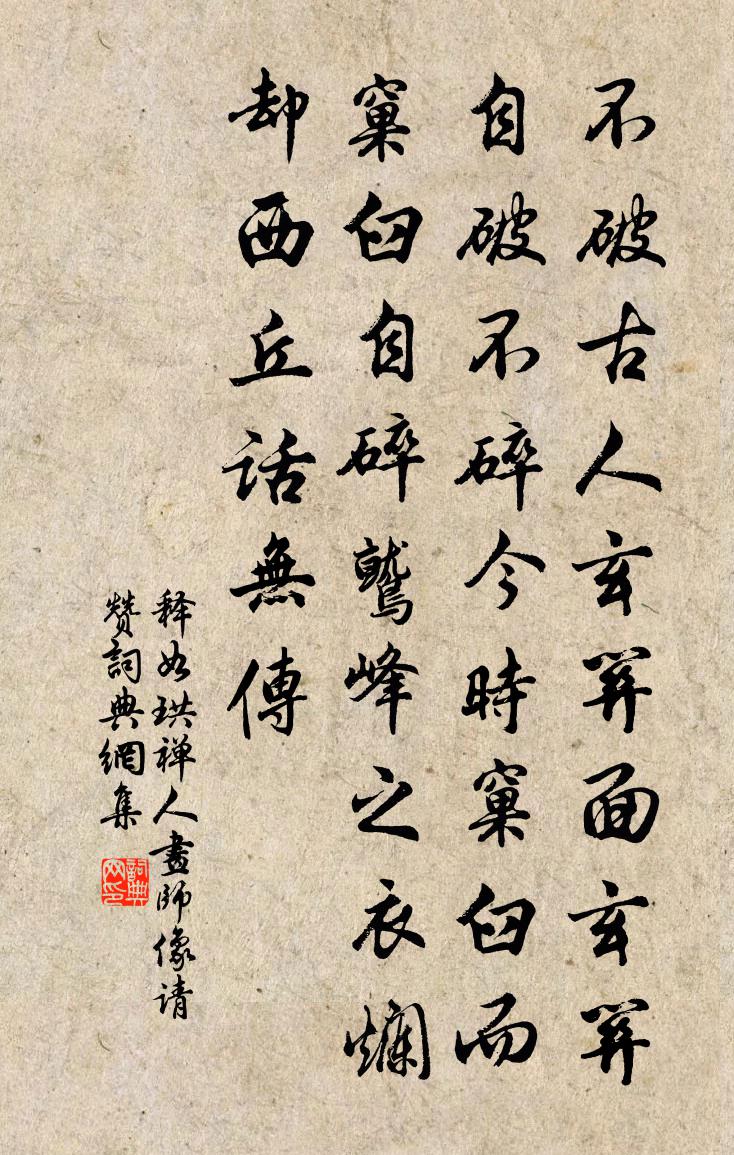 不破古人玄關面玄關
自破不碎今時窠臼而
窠臼自碎鷲峰之衣爛
却西丘話無傳
释如珙禅人畫師像请
赞詞典網集
詞典网印